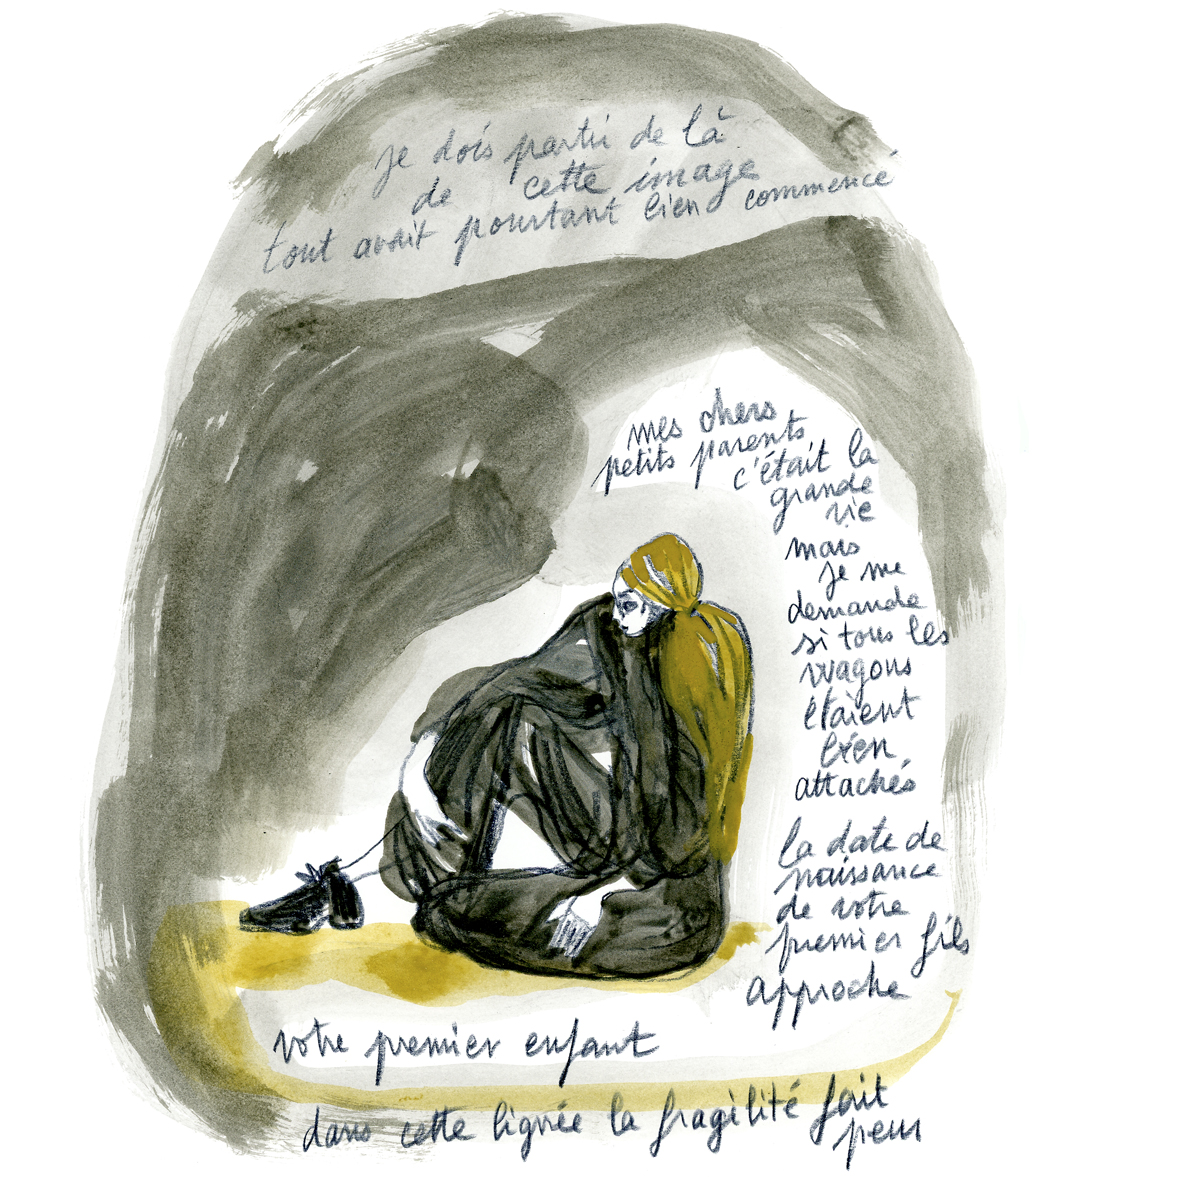 je dois partir de là
de cette image
tout avait pourtant bien commencé
mes chers
petits parents
c'était la
grande
vie
mais
je me
demande
si tous les
wagons
étaient
bien
attachés
la date de
naissance
de votre
premier fils
approche
votre premier enfant
dans cette lignée la fragilité fait
peur